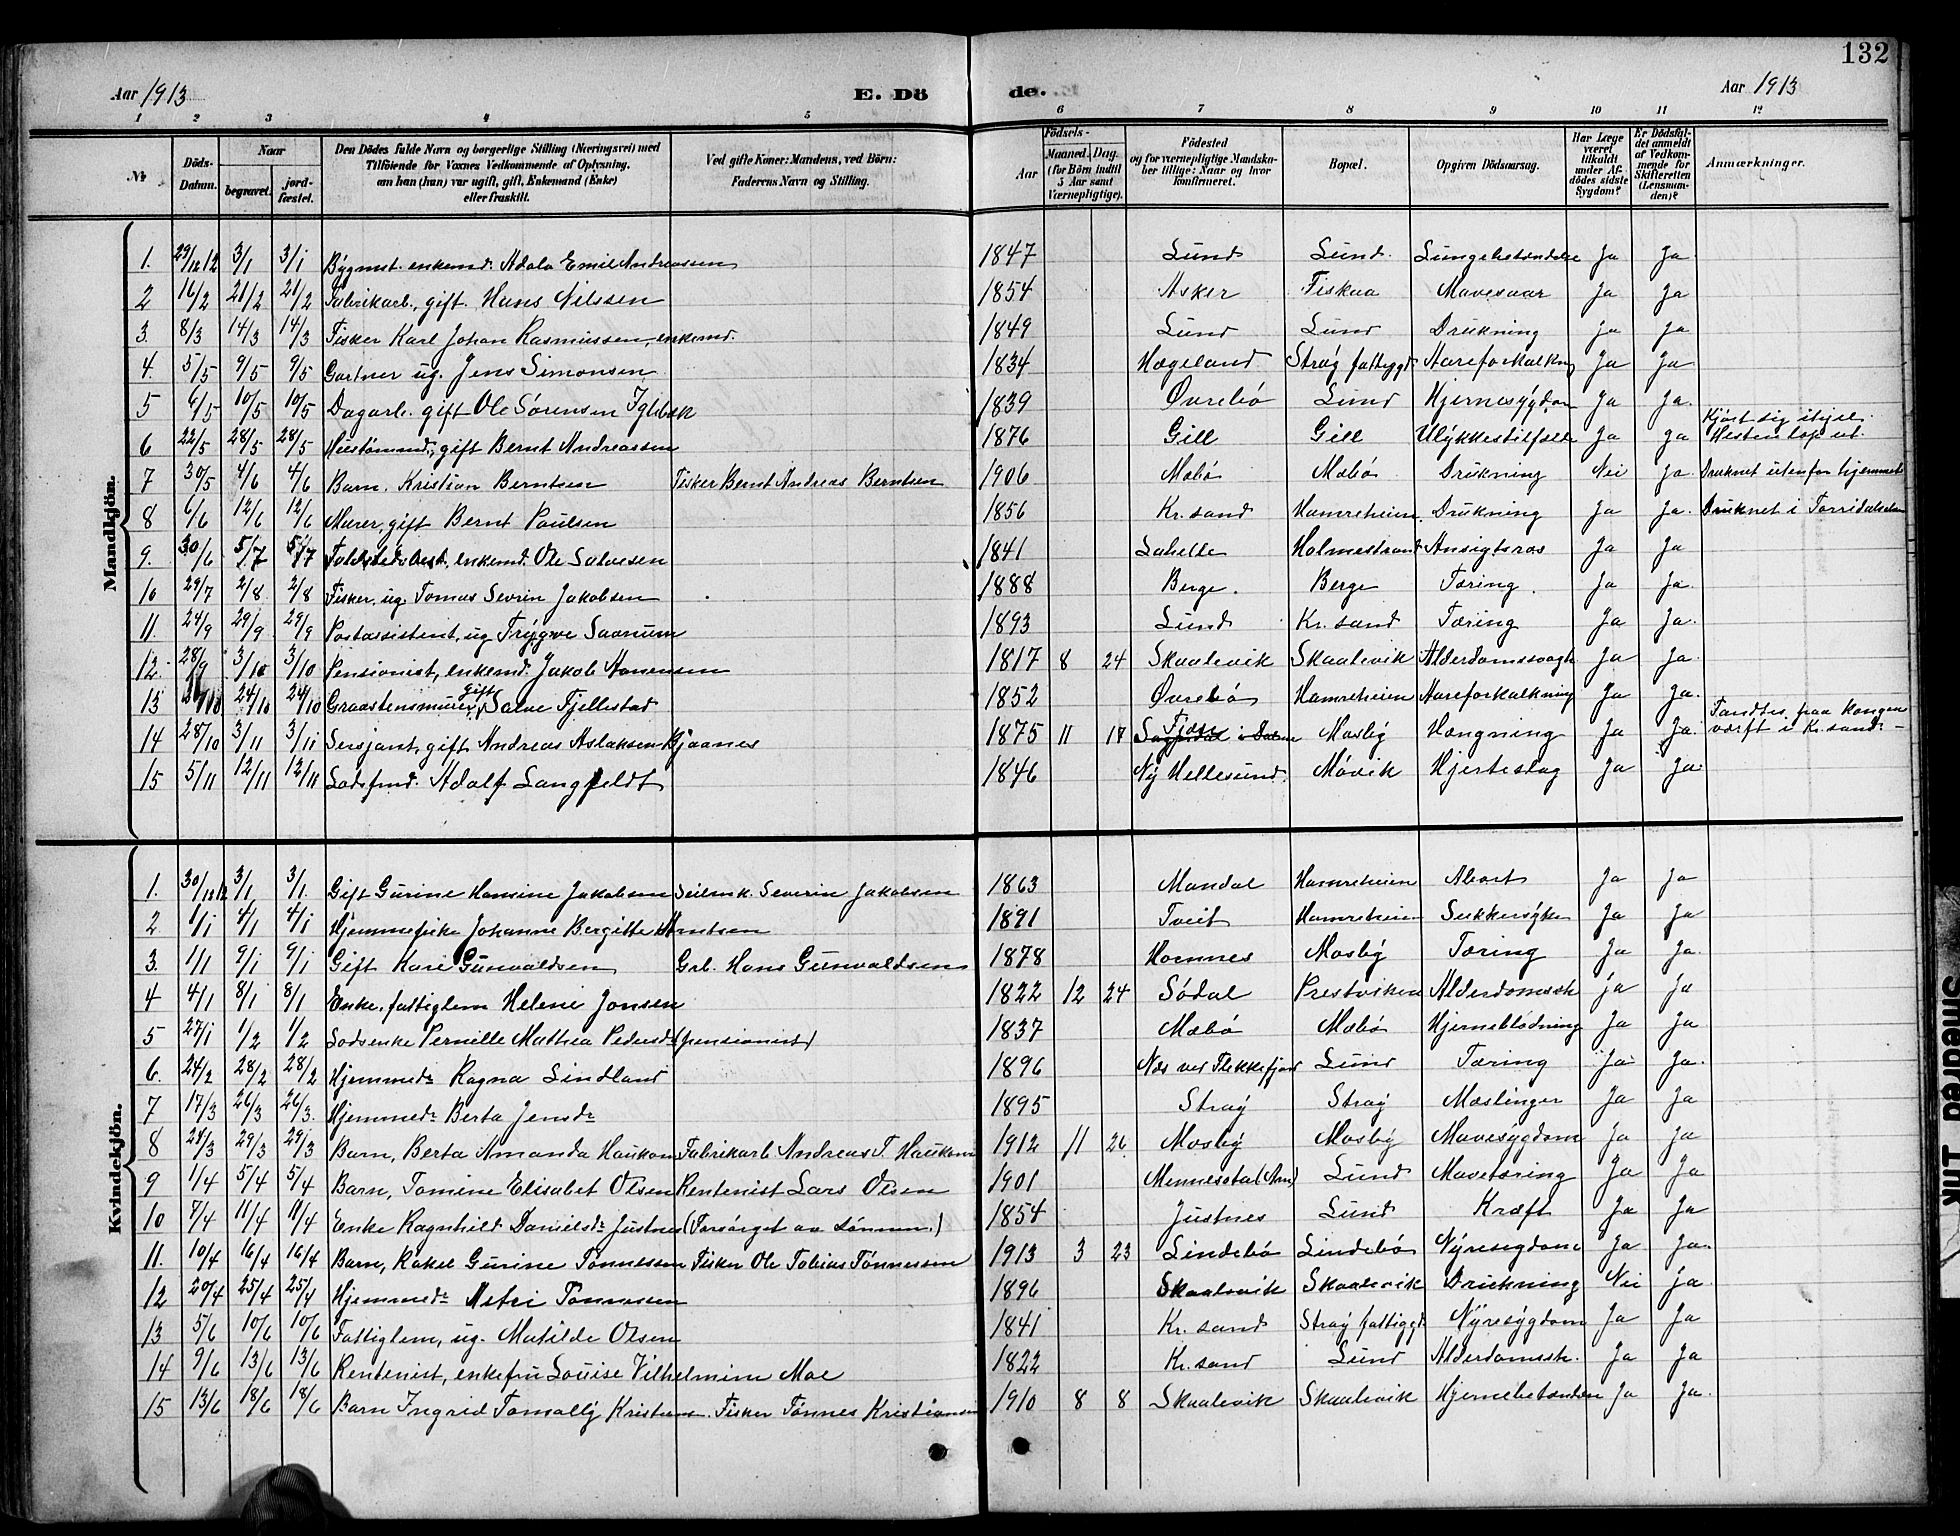 132
Aar 1913 E. Dö de. Aar 1913
1 2 3 4 5 6 7 8 9 10 11 12
№ Döds-Datum. Naar begravet. jord-fæstet. Den Dödes fulde Navn og borgerlige Stilling (Næringsvei) med Tilföiende for Voxnes Vedkommende af Oplysning, om han (hun) var ugift, gift, Enkemand (Enke) eller fraskilt. Ved gifte Koner: Mandens, ved Börn: Faderens Navn og Stilling. Födsels- Aar Maaned. Dag. (for Börn indtil 5 Aar samt Værnepligtige). Födested og for værnepligtige Mandskaber tillige: Naar og hvor konfirmeret. Bopæl. Opgiven Dödsaarsag. Har Læge været tilkaldt under Afdödes sidste Sygdom? Er Dödsfaldet anmeldt af Vedkommende for Skifteretten (Lensmanden)? Anmærkninger.
Mandkjön.
1. 29/12 12 3/1 3/1 Bygmst. enkemd. Adolo Emil Andreassen 1847 Lund Lund. Lungebetændelse Ja Ja
2 16/2 21/2 21/2 Fabrikarb., gift. Hans Nilssen 1854 Asker Fiskaa Mavesaar Ja Ja
3. 8/3 14/3 14/3 Fisker Karl Johan Rasmussen, enkemd. 1849 Lund Lund Drukning Ja Ja
4. 5/5 9/5 9/5 Gartner ug. Jens Simonsen 1834 Hægeland Straÿ fattiggd. Aareforkalkn. Ja Ja
5 6/5 10/5 10/5 Dagarb. gift Ole Sørensen Iglebæk 1839 Øvrebø Lund Hjernesÿgdom Ja Ja.
6 22/5 28/5 28/5 gift Bernt Andreassen 1876 Gill Gill Ulÿkkestilfælde Ja ja Kjørt sig ihjel. Hesten løp ut.
7 30/5 4/6 4/6 Barn, Kristian Berntsen Fisker Bernt Andreas Berntsen 1906 Mæbø Mæbø Drukning Nei ja. Druknet utenfor hjemmet
8 6/6 12/6 12/6 Murer, gift Bernt Paulsen 1856 Kr.sand Hamreheien. Drukning Ja Ja. Druknet i Torridalselven
9. 30/6 5/7 5/7 enkemd. Ole Salvesen 1841 Holmestrand Ansigtsros Ja Ja
10 29/7 2/8 2/8 Fisker, ug. Tomas Sevrin Jakobsen 1888 Berge. Berge Tæring. Ja Ja.
11. 24/9 29/9 29/9 Postassistent, ug Trÿgve Saanum 1893 Lund Kr.sand Tæring Ja Ja.
12 28/9 3/10 3/10 Pensionist, enkemd. Jakob Aanensen 1817 8 24 Skaalevik Skaalevik Alderdomssvagh. Ja Ja.
13 24/10 24/10 Graastensmurer, gift Salve Fjellestad 1852 Øvrebø Hamreheien Aareforkalkning Ja Ja.
14 28/10 3/11 3/11 Sersjant, gift Andreas Aslaksen Bjaanes 1875 11 17 Mosbÿ Hængning Ja Ja. Fandtes paa kongens værft i Kr.sand. -
15 5/11 12/11 12/11 Lodsfmd. Adolf Langfeldt 1846 Nÿ Hellesund. Møvik Hjerteslag Ja Ja.
Kvindekjön.
1. 30/12 12 3/1 3/1. Gift Gurine Hansine Jakobsen Seilmk. Severin Jakobsen 1863 Mandal Hamreheien Abort Ja Ja
2 1/1 4/1 4/1 Hjemmepike Johanne Bergitte Arntsen 1891 Tveit Hamreheien Sukkersÿke Ja Ja
3. 1/1 9/1 9/1 Gift Kari Gunvaldsen Grb. Hans Gunvaldsen 1878 Hornnes Mosbÿ Tæring Ja Ja.
4 4/1 8/1 8/1 Enke, fattiglem Helene Jonsen 1822 12 24 Sødal Prestviken Alderdomssk ja ja
5 27/1 1/2 1/2 Lodsenke Pernille Mathea Pedersdr. (pensionist) 1837 Mæbø Mæbø Hjerneblødning Ja Ja
6. 24/2 28/2 28/2 Hjemmedr. Ragna Lindland 1896 Næs ved Flekkefjord Lund Tæring Ja Ja.
7 17/3 26/3 26/3. Hjemmedr. Berta Jensdr. 1895 Straÿ Straÿ Mæslinger Ja Ja
8 24/3 29/3 29/3 Barn, Berta Amanda Haukom Fabrikarb Andreas T. Haukom 1912 11 26 Mosbÿ Mosbÿ Mavesÿgdom Ja Ja
9 1/4 5/4 5/4 Barn, Tomine Elisabet Olsen Rentenist Lars Olsen 1901 Lund Mavetæring Ja Ja
10 7/4 11/4 11/4 Enke Ragnhild Danielsdr. Justnes (Forsørget av sønnen.) 1854 Justnes Lund Kræft Ja Ja
11. 10/4 16/4 16/4 Barn, Rakel Gurine Tønnessen Fisker Ole Tobias Tønnessen 1913 3 23 Lindebø Lindebø Nÿresygdom Ja Ja.
12 20/4 25/4 25/4 Hjemmedr. Astri Tønnessen 1896 Skaalevik Skaalevik Drukning Nei ja
13 5/6 10/6 10/6 Fattiglem, ug. Matilde Olsen 1841 Kr.sand Straÿ fattiggd. Nÿresÿgdom Ja Ja
14 9/6 13/6 13/6 Rentenist, enkefru Louise Vilhelmine Moe 1822 Kr.sand Lund Alderdomssk. Ja Ja
15 13/6 18/6 18/6 Barn Ingrid Tomally Kristiansen. Fisker Tønnes Kristiansen 1910 8 8 Skaalevik Skaalevik Hjernebetænden Ja Ja.